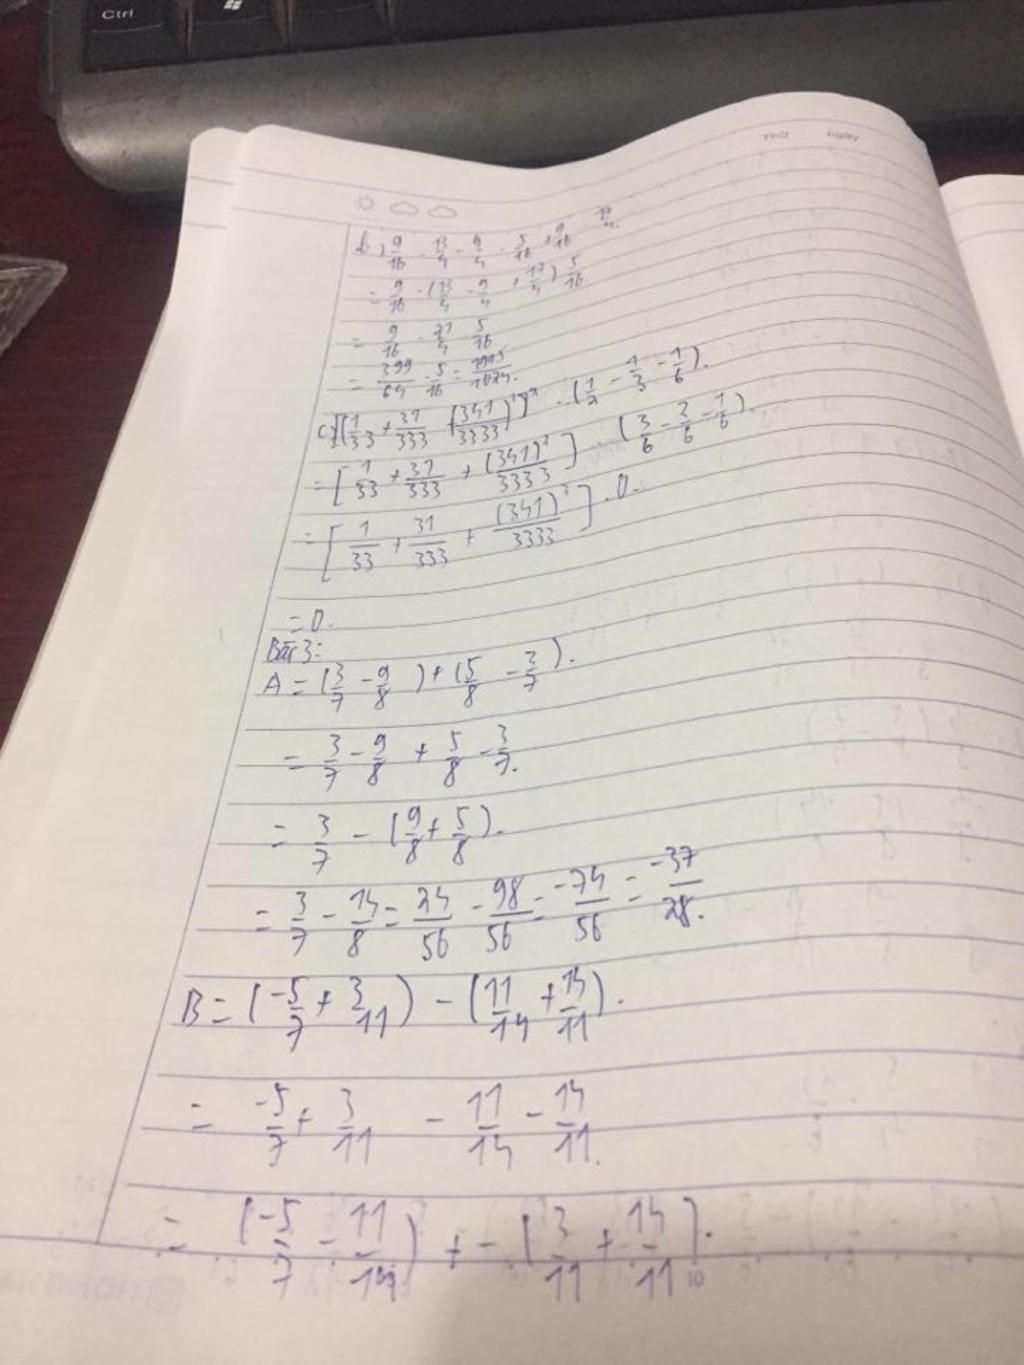 Ctrl
Thứ Ngày
b) 9/16 . 13/4 - 9/4 . 5/16 + 9/16 17/4.
= 9/16 . (13/4 - 9/4 + 17/4) 5/16
= 9/16 . 21/4 . 5/16
= 399/64 . 5/16 = 1995/1024.
c) [(1/33 + 31/333 + (341/3333)²]² . (1/2 - 1/3 - 1/6).
= [1/33 + 31/333 + (341)²/3333] . (3/6 - 2/6 - 1/6).
= [1/33 + 31/333 + (341)²/3333] . 0.
= 0.
Bài 3:
A = (3/7 - 9/8) + (5/8 - 3/7).
= 3/7 - 9/8 + 5/8 - 3/7.
= 3/7 - (9/8 + 5/8).
= 3/7 - 14/8 = 24/56 - 98/56 = -74/56 = -37/28.
B = (-5/7 + 3/11) - (11/14 + 14/11).
= -5/7 + 3/11 - 11/14 - 14/11.
= (-5/7 - 11/14) + - (3/11 + 14/11).
10